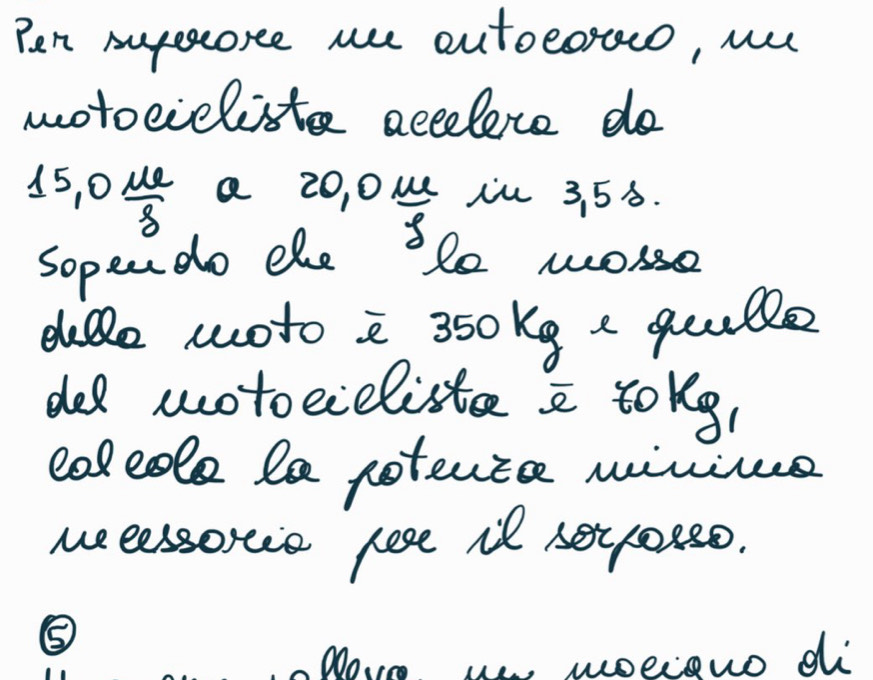 Per superare un autocarro, un
motociclista accelera da
15,0 m/s a 20,0 m/s in 3,5 s.
Sapendo che la massa
della moto è 350 Kg e quella
del motociclista è 70 Kg,
calcola la potenza minima
necessaria per il sorpasso.
⑤
un macigno di